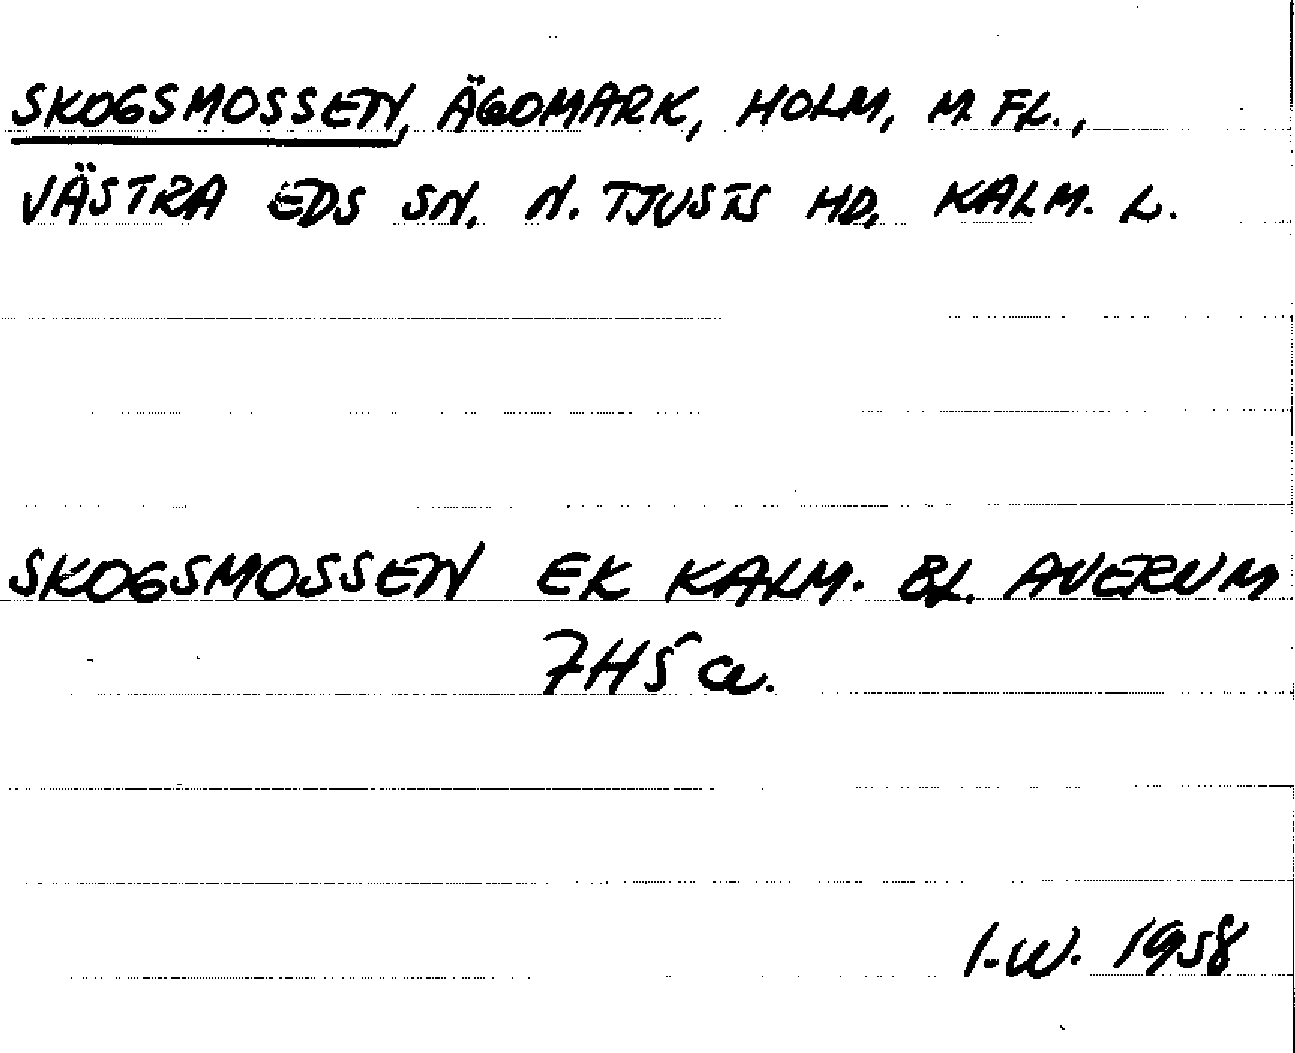 SKOGSMOSSEN, ÄGOMARK, HOLM, M. FL.,
VÄSTRA EDS SN. N. TJUSTS HD. KALM. L.
SKOGSMOSSEN EK KALM. BL. AVERUM
7H5a.
I-W. 1958